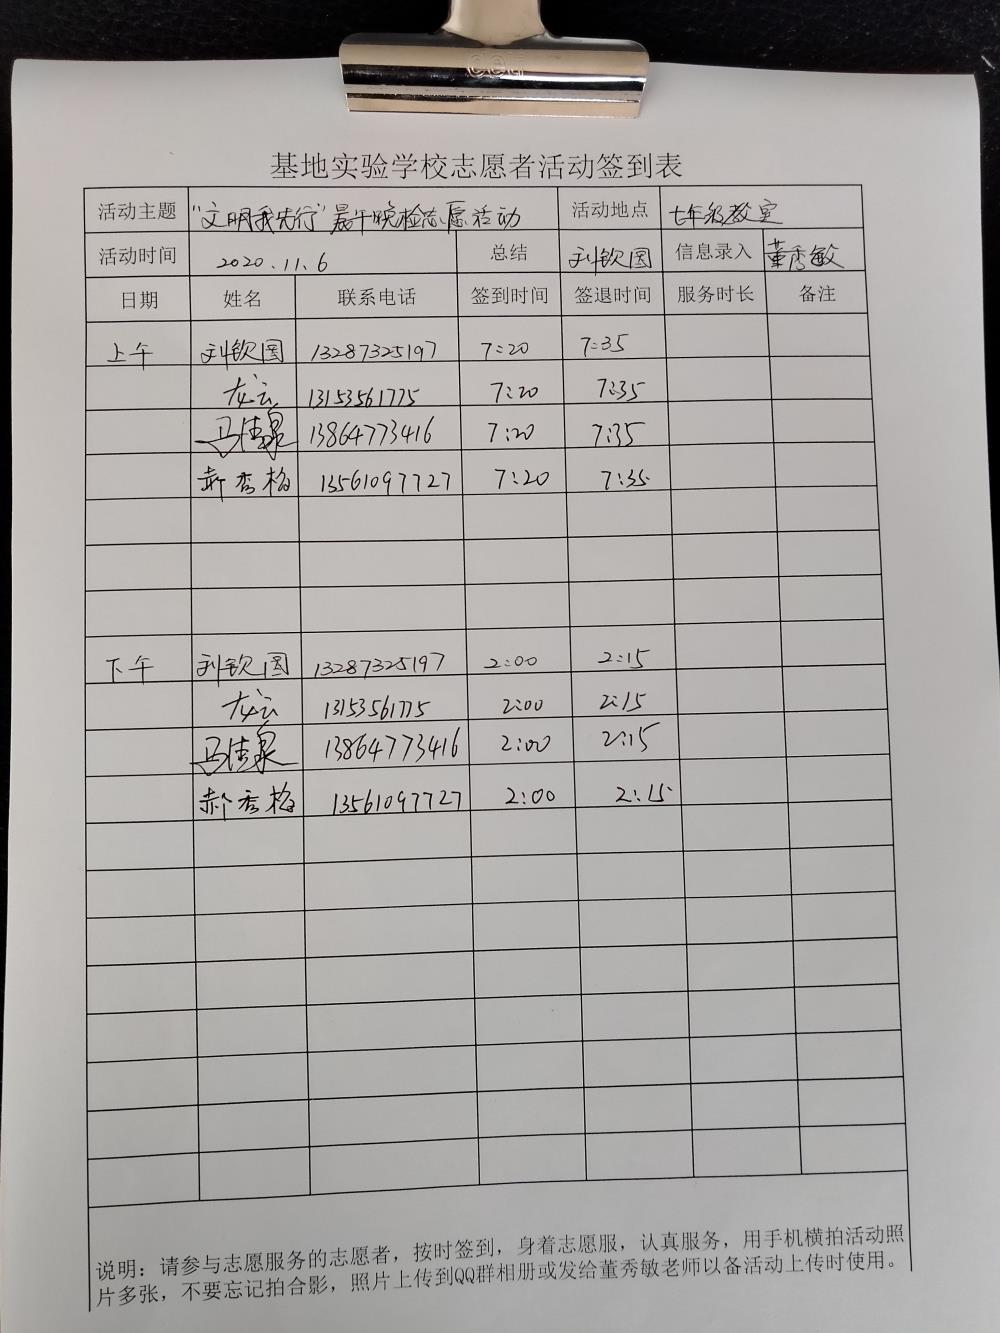 基地实验学校志愿者活动签到表
活动主题 "文明我先行"晨午晚检志愿活动 活动地点 七年级教室
活动时间 2020.11.6 总结 刘钦国 信息录入 董秀敏
日期 姓名 联系电话 签到时间 签退时间 服务时长 备注
上午 刘钦国 13287325197 7:20 7:35
龙云 13153561775 7:20 7:35
马倩泉 13864773416 7:20 7:35
郝秀梅 13561097727 7:20 7:35
下午 刘钦国 13287325197 2:00 2:15
龙云 13153561775 2:00 2:15
马倩泉 13864773416 2:00 2:15
郝秀梅 13561097727 2:00 2:15
说明：请参与志愿服务的志愿者，按时签到，身着志愿服，认真服务，用手机横拍活动照
片多张，不要忘记拍合影，照片上传到QQ群相册或发给董秀敏老师以备活动上传时使用。